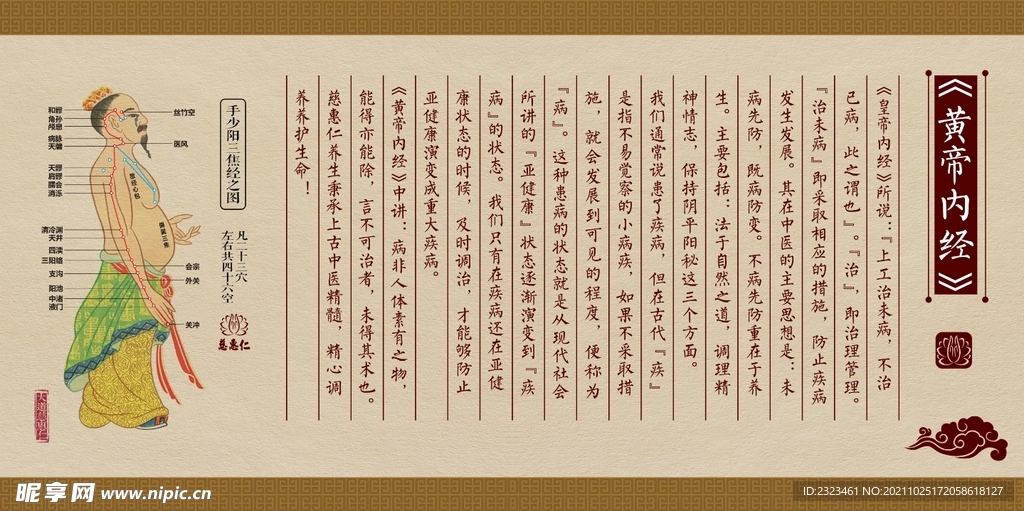 《黄帝内经》
《皇帝内经》所说：『上工治未病，不治
已病，此之谓也』。『治』，即治理管理。
『治未病』即采取相应的措施，防止疾病
发生发展。其在中医的主要思想是：未
病先防，既病防变。不病先防重在于养
生。主要包括：法于自然之道，调理精
神情志，保持阴平阳秘这三个方面。
我们通常说患了疾病，但在古代『疾』
是指不易觉察的小病疾，如果不采取措
施，就会发展到可见的程度，便称为
『病』。这种患病的状态就是从现代社会
所讲的『亚健康』状态逐渐演变到『疾
病』的状态。我们只有在疾病还在亚健
康状态的时候，及时调治，才能够防止
亚健康演变成重大疾病。
《黄帝内经》中讲：病非人体素有之物，
能得亦能除，言不可治者，未得其术也。
慈惠仁养生秉承上古中医精髓，精心调
养养护生命！
手少阳三焦经之图
凡二十三穴
左右共四十六空
慈惠仁
和髎
角孙
颅息
瘈脉
天牖
天髎
肩髎
臑会
消泺
清冷渊
天井
四渎
三阳络
支沟
阳池
中渚
液门
丝竹空
医风
会宗
外关
关冲
昵享网 www.nipic.cn
ID:2323461 NO:20211025172058618127